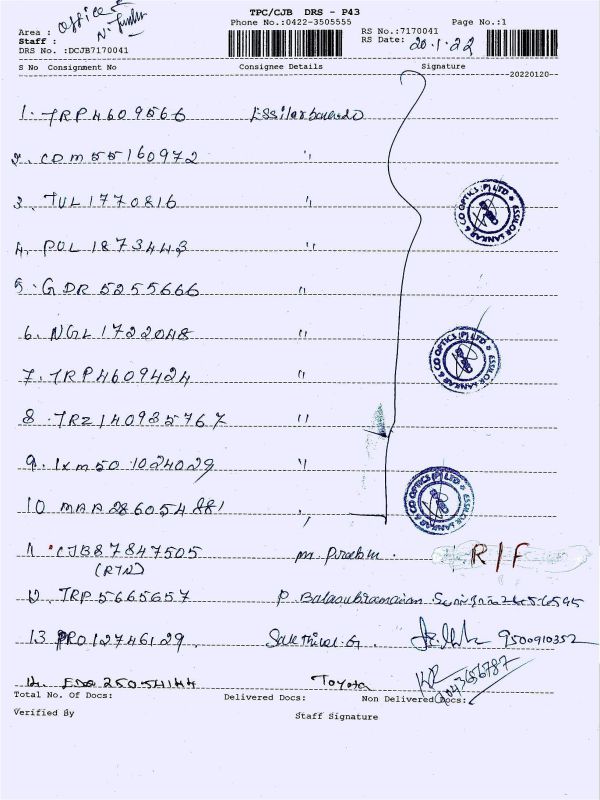 TPC/CJB DRS - P43
Phone No.:0422-3505555 Page No.:1
Area : office
Staff :
RS No.:7170041
RS Date: 20.1.22
DRS No. :DCJB7170041
S No Consignment No Consignee Details Signature
--20220120--
1. TRP4609566
2. COM55160972 "
3. TUL1770816 "
4. POL1873443 "
5. GDR5255666 "
6. NGL1722048 "
7. TRP4609424 "
8. TRZ140935767 "
9. IXM501024029 "
10 MAA286054881 "
11 CJB87847505 M. Prabhu. R/F
(RTN)
12. TRP5665657 P. Balasubramaniam
13 PRO12746129. Sakthivel.G 9500910352
14. EDQ25054144 Toyota
ESSILOR LANKAR & CO OPTICS (P) LTD
ESSILOR LANKAR & CO OPTICS (P) LTD
ESSILOR LANKAR & CO OPTICS (P) LTD
Total No. Of Docs: Delivered Docs: Non Delivered Docs:
Verified By Staff Signature